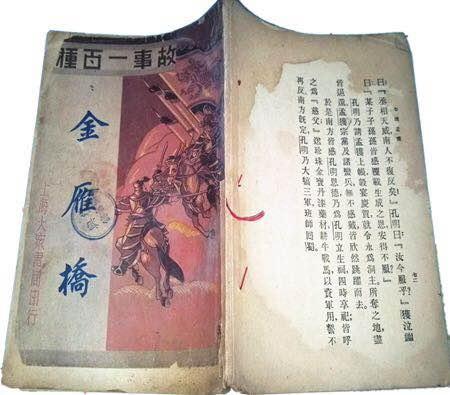 故事一百種
金雁橋
海大眾書局印行
曰：『丞相天威南人不復反矣』孔明曰：『汝今服乎？』獲泣謝
曰：『某子子孫孫皆感覆載生成之恩安得不服』
孔明乃請孟獲上帳設宴慶賀就令永為洞主所奪之地盡
皆退還孟獲宗黨及諸蠻兵無不感戴皆欣然跳躍而去。
於是南方皆感孔明恩德乃爲孔明立生祠四時享祀皆呼
之爲『慈父』送珍珠金寶丹漆藥材耕牛戰馬以資軍用誓不
再反南方既定孔明乃大犒三軍班師回蜀。